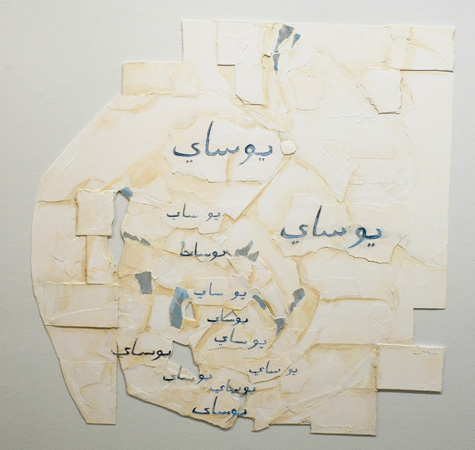 يوساي
يوساي
يوساي
يوساي
يوساي
يوساي
يوساي
يوساي
يوساي
يوساي